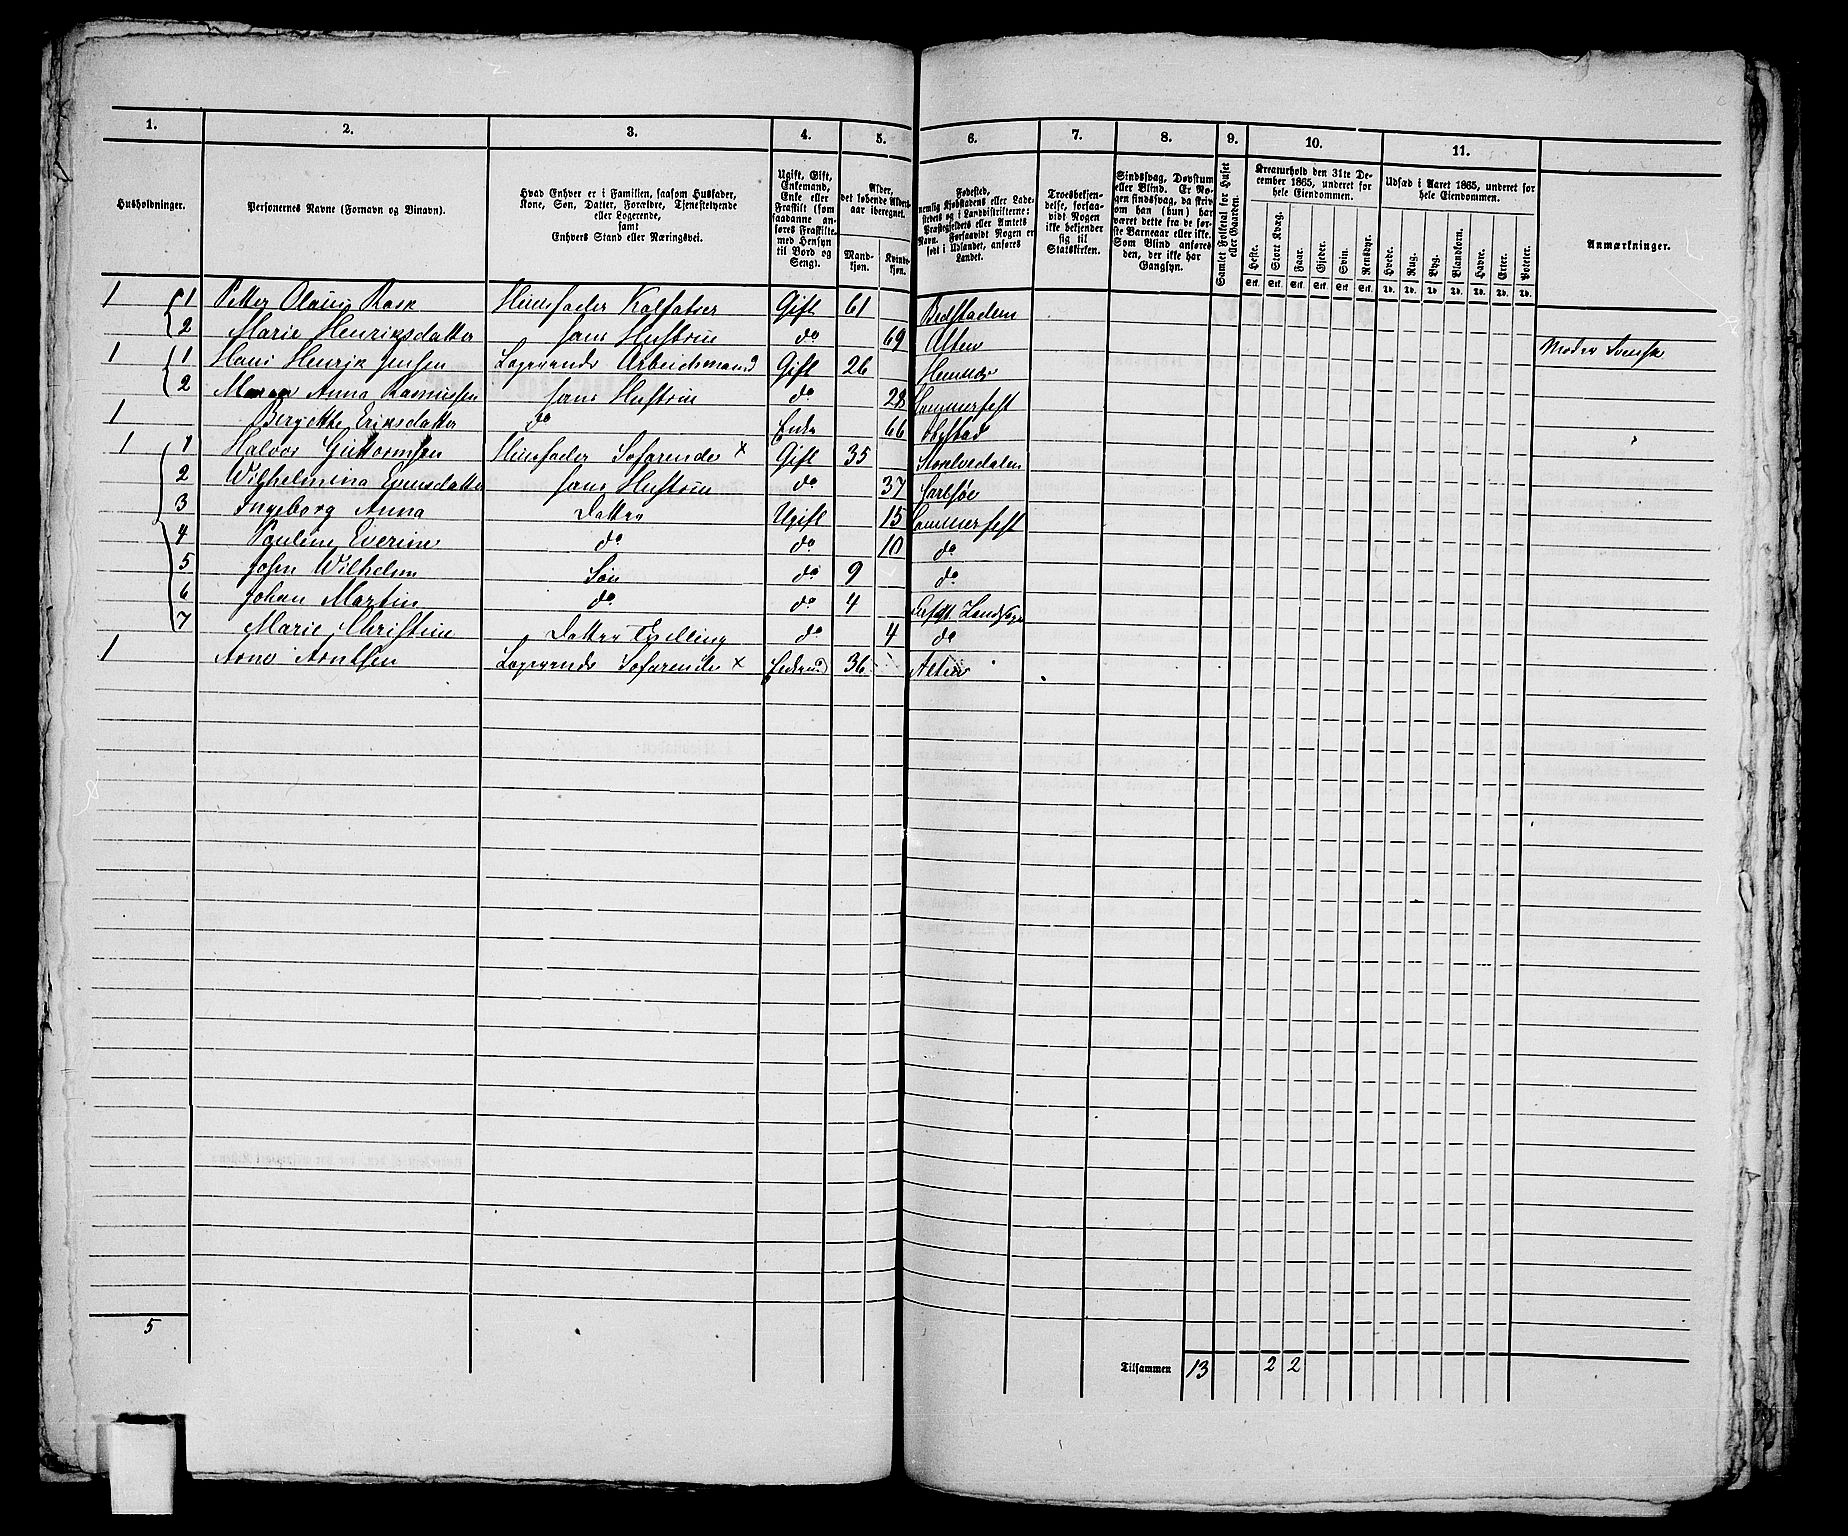 1. 2. 3. 4. 5. 6. 7. 8. 9. 10. 11.
Husholdninger.
Personernes Navne (Fornavn og Binavn).
Hvad Enhver er i Familien, saasom Husfader,
Kone, Søn, Datter, Forældre, Tjenestetyende
eller Logerende,
samt
Enhvers Stand eller Næringsvei.
Ugift, Gift,
Enkemand,
Enke eller
Fraskilt (som
saadanne an-
føres Fraskilte
med Hensyn
til Bord og
Seng).
Alder,
det løbende Alders-
aar iberegnet.
Mand-
kjøn.
Kvinde-
kjøn.
Fødested,
nemlig Kjøbstadens eller Lade-
stedets og i Landdistrikterne:
Præstegjeldets eller Amtets
Navn. Forsaavidt Nogen er
født i Udlandet, anføres
Landet.
Troesbekjen-
delse, forsaa-
vidt Nogen
ikke bekjender
sig til
Statskirken.
Sindssvag, Døvstum
eller Blind. Er No-
gen sindssvag, da skriv
om han (hun) har
været dette fra de før-
ste Barneaar eller ikke.
Som Blind anføres
den, der ikke har
Gangsyn.
Samlet Folketal for Huset
eller Gaarden.
Kreaturhold den 31te De-
cember 1865, underet for
hele Eiendommen.
Heste. Stort Kvæg. Faar. Gjeder. Svin. Rensdyr.
Stk. Stk. Stk. Stk. Stk. Stk.
Udsæd i Aaret 1865, underet for
hele Eiendommen.
Hvede. Rug. Byg. Blandkorn. Havre. Erter. Poteter.
Td. Td. Td. Td. Td. Td. Td.
Anmærkninger.
1 1 Petter Olaus Rask Huusfader Kalfatrer Gift 61
2 Marie Henriksdatter hans Hustrue do 69 Alten Moder Svensk
1 1 Hans Henrik Jensen Logerende Arbeidsmand Gift 26
2 Anna Rasmussen hans Hustrue do 28 Hammerfest
1 Bergette Eriksdatter do Enke 66
1 1 Halvor Guttormsen Huusfader Søfarende x Gift 35
2 Wilhelmina Evensdatter hans Hustrue do 37 Carlsøe
3 Ingeborg Anna Datter Ugift 15 Hammerfest
4 Pauline Everine do do 10 do
5 John Wilhelm Søn do 9 do
6 Johan Martin do do 4 Landsogn
7 Marie Christine Datter Tvilling do 4 do
1 Arne Arntsen Logerende Søfarende x Enkemd 36 Alten
5
Tilsammen 13 2 2